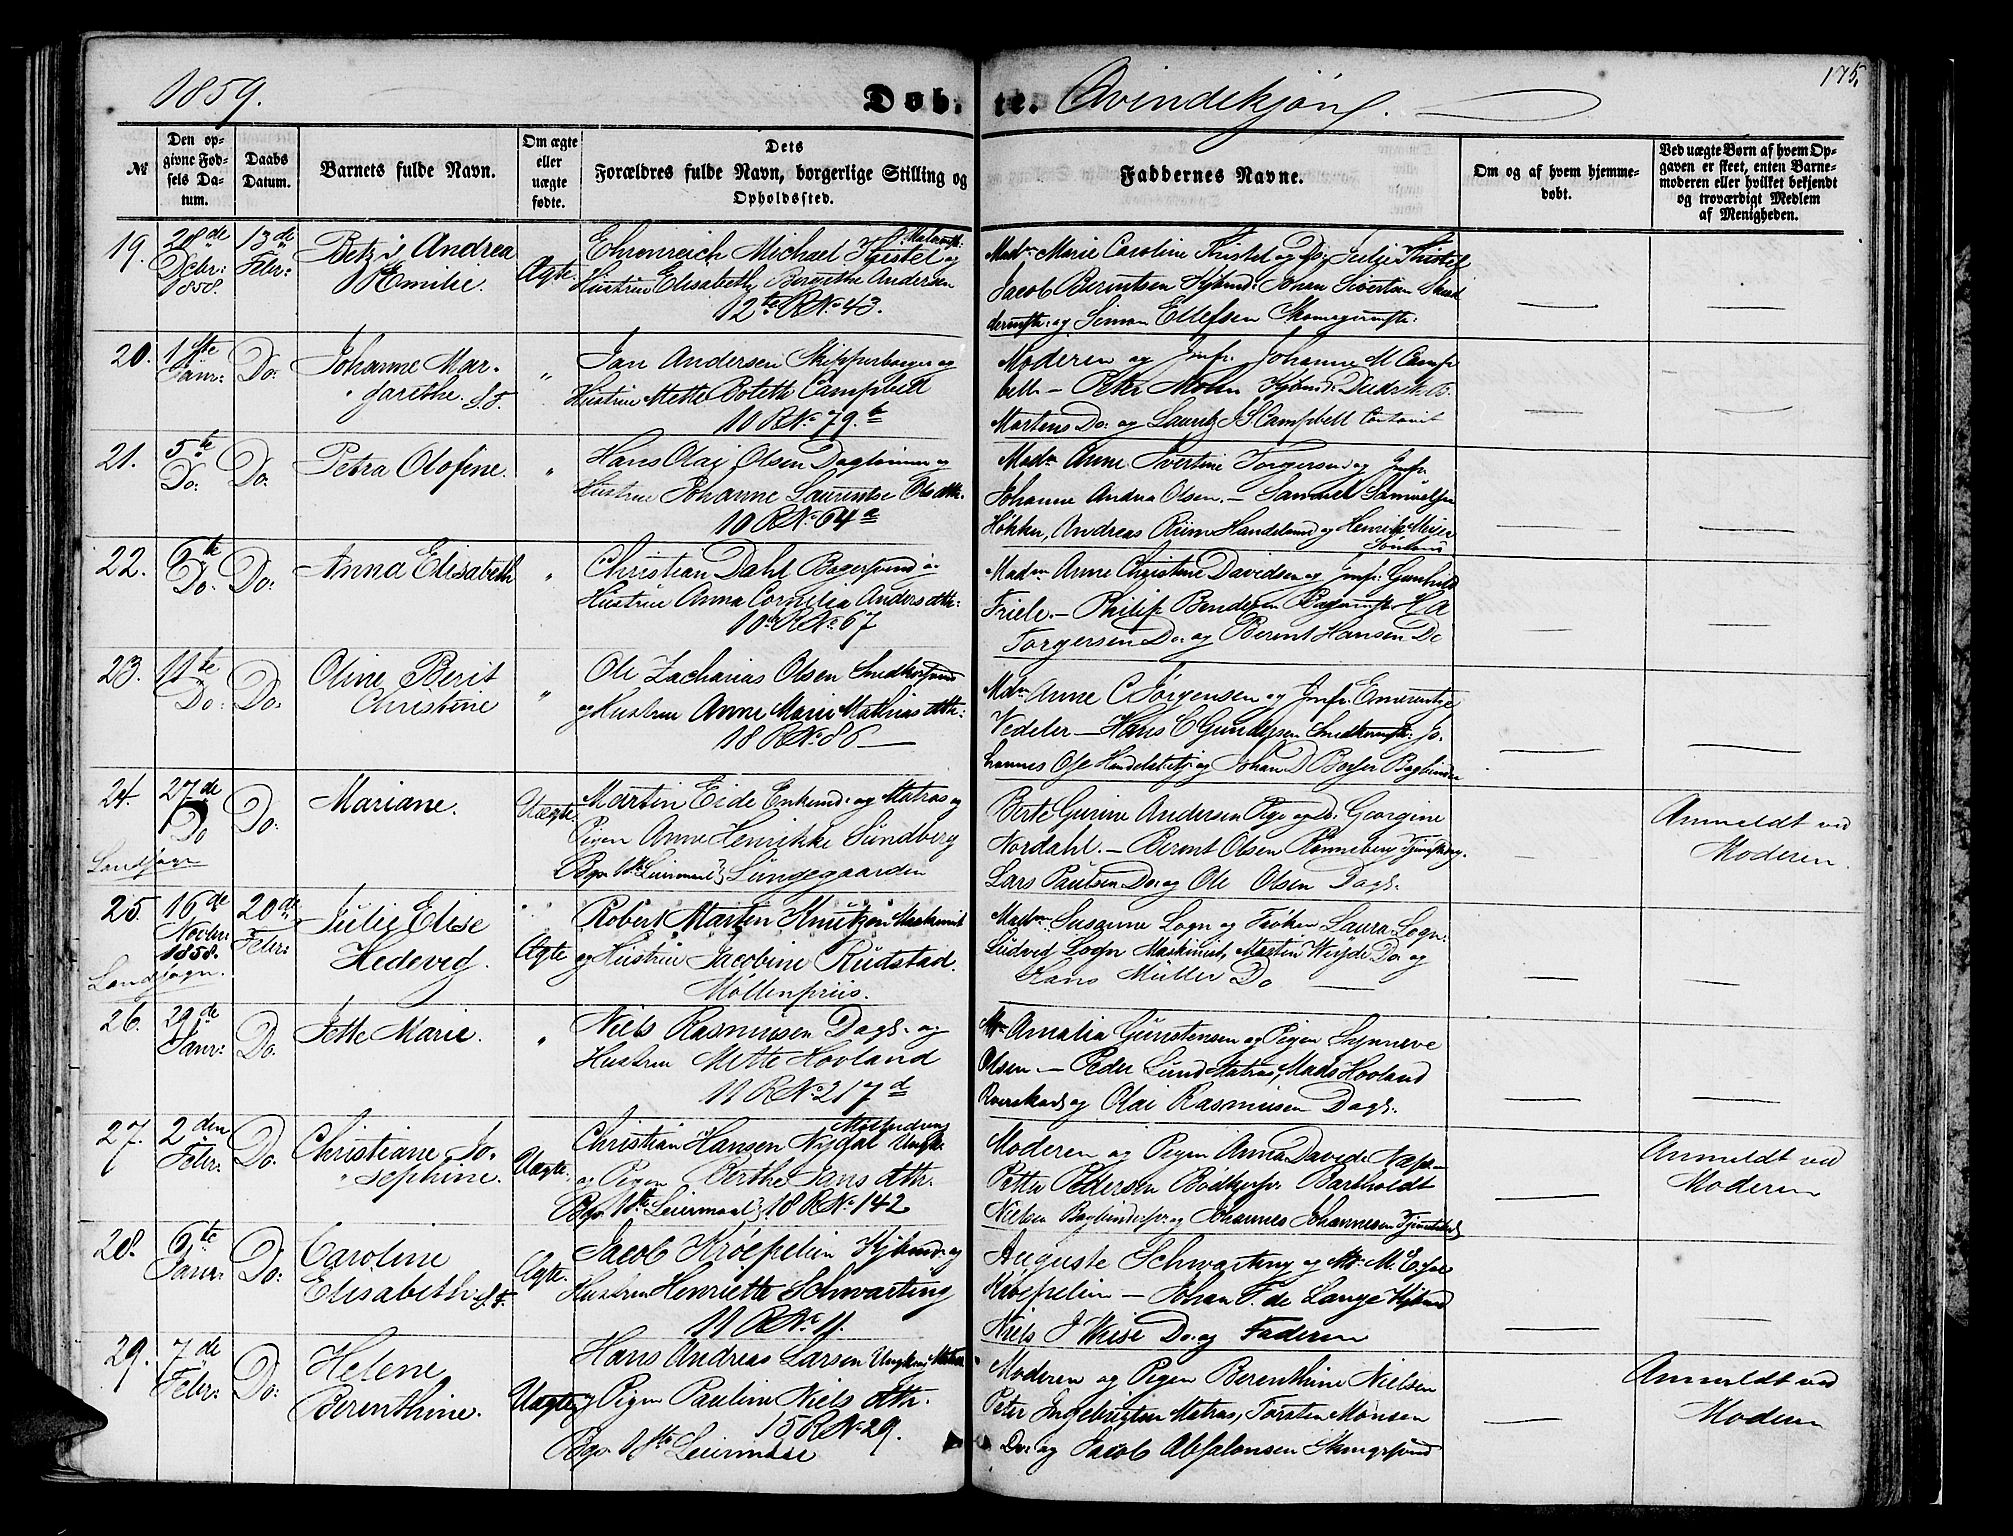 1859.
Døb-
te.
Qvindekjøn.
175.
№
Den op-
givne Fød-
sels Da-
tum.
Daabs
Datum.
Barnets fulde Navn.
Om ægte
eller
uægte
fødte.
Dets
Forældres fulde Navn, borgerlige Stilling og
Opholdssted.
Faddernes Navne.
Om og af hvem hjemme-
døbt.
Ved uægte Børn af hvem Op-
gaven er skeet, enten Barne-
moderen eller hvilket bekjendt
og troværdigt Medlem
af Menigheden.
19.
28de
Debr:
1858.
13de
Febr:
Betzi Andrea
Emilie.
Ægte
Ehrenreich Michael Thistel og
Hustrue Elisabeth Bergithe Andersen
12te R No 43.
Madm Marie Caroline Thistel og Do: Julie Thistel
Jacob Berentsen Kjbmd: Johan Sivertsen
og Simon Ellefsen Skomagermstr:
20.
1ste
Janr:
Do:
Johanne Mar-
garethe. S.F.
"
Jan Andersen Skipperborger og
Hustrue Mette Boleth Campbell
10 R No 79.b
Moderen og Jmfr. Johanne M Camp-
bell. - Peter Mohn Kjbmd: Diederik B.
Martens Do: og Lauritz S Campbell Contorist
21.
5te
Do:
Do:
Petra Olofine.
"
Hans Olai Olsen Dagleiner og
Hustrue Johanne Laurentse Olsdttr.
10 R No 64 a
Madm Anne Ivertine Torgersen og Jmfr.
Johanne Andrea Olsen. - Samuel Samuelsen
Høkker, Andreas Riim Handelsmd og Henrik Meyer
22.
6te
Do:
Do:
Anna Elisabeth
"
Christian Dahl Bagersvend og
Hustrue Anna Cornelia Andersdttr:
10de R No 67
Madm Anne Christine Davidsen og Jmfr: Gunhild
Friele. - Philip Bendixen Bagermstr H A
Torgersen Do: og Berent Hansen Do
23.
11te
Do:
Do:
Oline Berit
Christine
"
Ole Zacharias Olsen Snedkersvend
og Hustrue Anne Marie Mathiasdttr:
18 R No 86
Mdm Anne C Jørgensen og Jmfr. Emerentse
Vedeler - Hans C Gundersen Snedkermstr: Jo-
hannes Ose Handelsbetj: og Johan D Beyer Bogbinder
24.
27de
Do
Landsogn
Do:
Mariane.
Uægte.
Martin Eide Enkemd: og Matros og
Pigen Anne Henrikke Sundberg
Bgs 1ste Leiermaal; Lungegaarden
Berte Gurine Andersen Pige og Do: Georgine
Nordahl. - Berent Olsen Ronneberg
Lars Paulsen Do: og Ole Olsen Dags.
Anmeldt ved
Moderen.
25.
16de
Novbr:
1858.
Landsogn.
20de
Febr:
Julie Elise
Hedeveg.
Ægte
Robert Martin Knutzen Maskinist
og Hustrue Jacobine Rudstad.
Møllenpriis.
Madm Susanne Sogn og Frøken Laura Sogn.
Ludvig Sogn Maskinist, Martin Weyde Do: og
Hans Müller Do
26.
29de
Janr:
Do.
Jette Marie.
"
Niels Rasmussen Dags. og
Hustrue Mette Hovland
11 R No 217 d
Mm Amalia Gunstensen og Pigen Synneve
Olsen. - Peder Lund Matros, Mads Hovland
og Olai Rasmusen Dags.
27.
2den
Febr:
Do.
Christiane Jo-
sephine.
Uægte.
Christian Hansen Nydal Ungk.
og Pigen Berthe Jansdttr.
Bgs 1ste Leiermaal; 18 R No 142
Moderen og Pigen Anna Davida Næss -
Petter Pedersen Bødkersv. Bartholdt
Nielsen Bogbindersv: og Johannes Johannesen
Anmeldt ved
Moderen
28.
6te
Janr:
Do:
Caroline
Elisabeth S.F.
Ægte.
Jacob Krøepelien Kjbmd: og
Hustrue Henriette Schwarting
11 R No 11.
Auguste Schwarting og
Krøepelin - Johan F. de Lange Kjbmd
Niels J Weise Do: og Faderen
29.
7de
Febr:
Do:
Helene
Berenthine.
Uægte
Hans Andreas Larsen Ungkarl Matros
og Pigen Pauline Nielsdttr.
15 R No 29.
Bgs 1ste Leiermaal
Moderen og Pigen Berenthine Nielsen
Peter Ingebrigtsen Matros, Torsten Monsen
Do: og Jacob Absalonsen
Anmeldt ved
Moderen